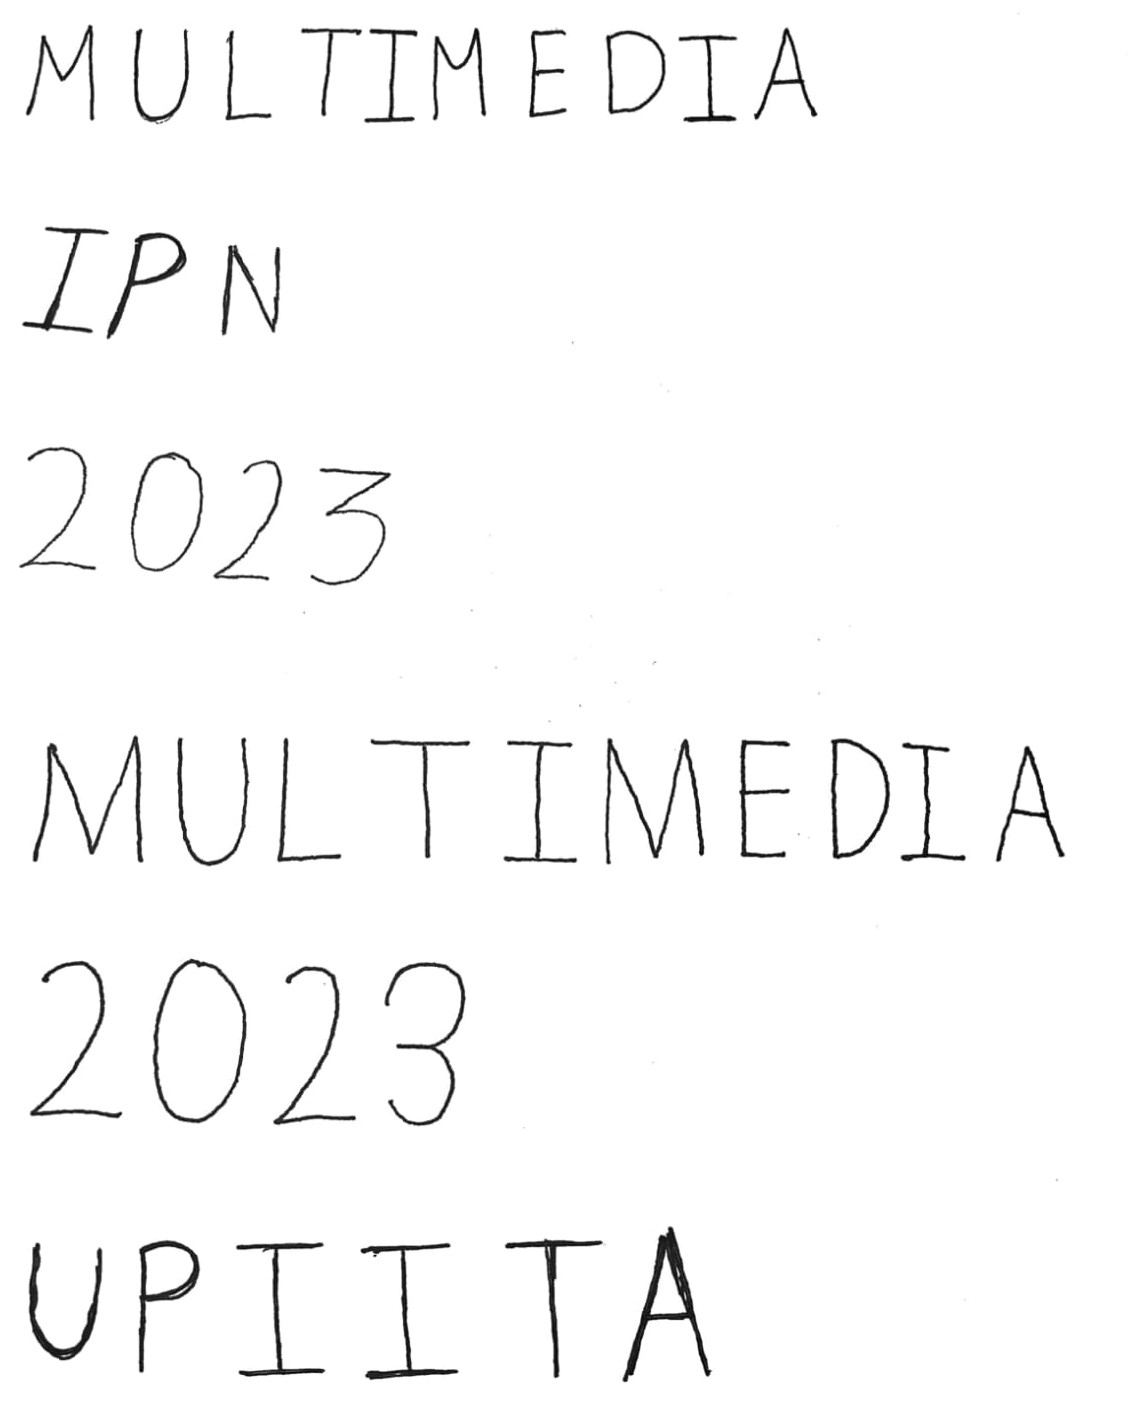 MULTIMEDIA
IPN
2023
MULTIMEDIA
2023
UPIITA